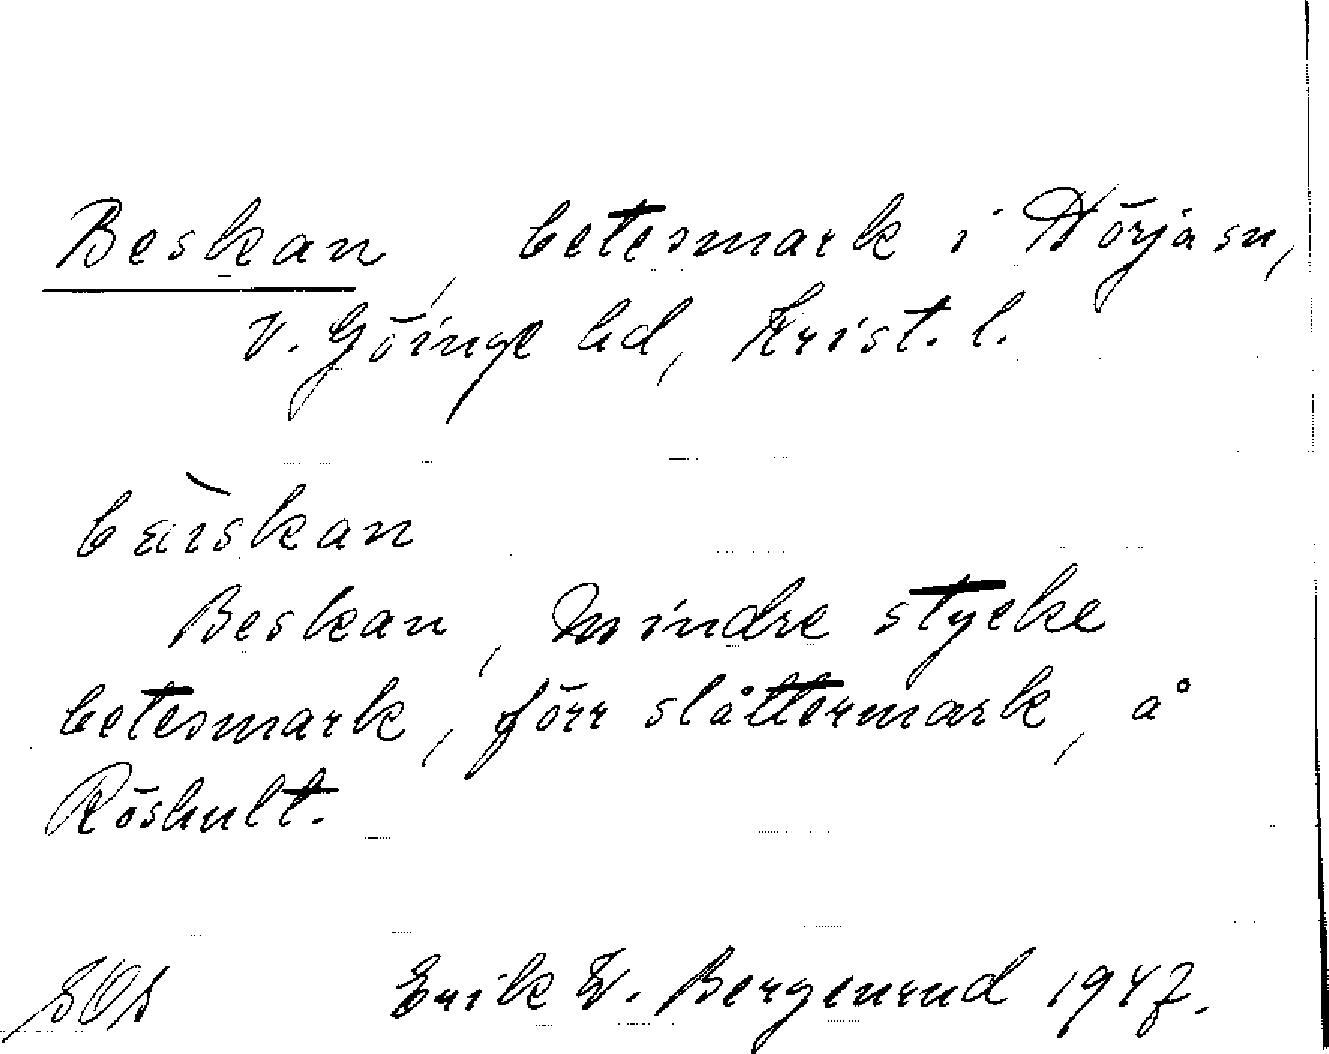 Beskan, betesmark i Hörja sn,
V. Göinge hd, Krist. l.
bäiskan
Beskan, mindre stycke
betesmark, förr slåttermark, å
Röshult.
Erik W. Bergenrud 1947.